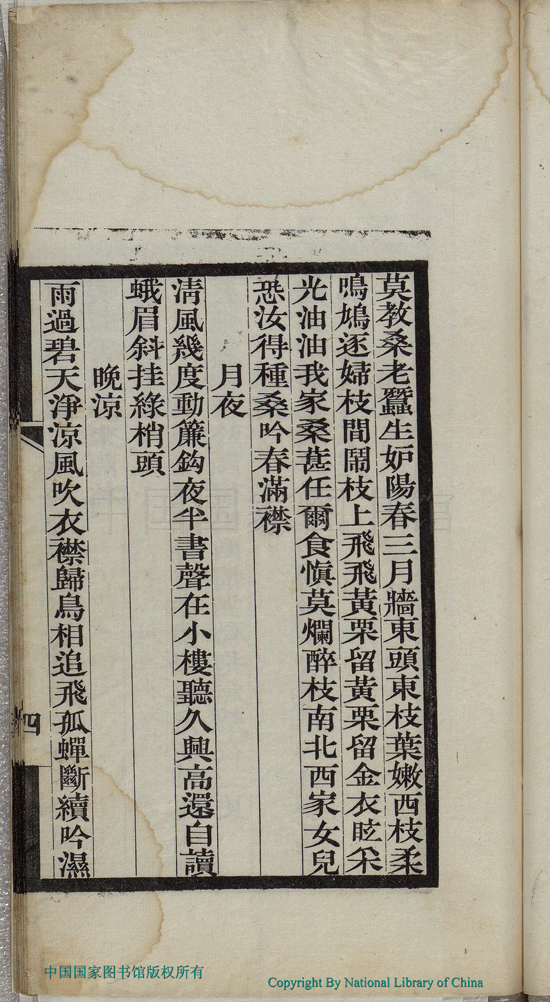 莫教桑老蠶生妒陽春三月牆東頭東枝葉嫩西枝柔
鳴鳩逐婦枝間鬧枝上飛飛黃栗留黃栗留金衣眩采
光油油我家桑葚任爾食愼莫爛醉枝南北西家女兒
恐汝得種桑吟春滿襟
月夜
淸風幾度動簾鈎夜半書聲在小樓聽久興高還自讀
蛾眉斜挂綠梢頭
晚涼
雨過碧天淨涼風吹衣襟歸鳥相追飛孤蟬斷續吟濕
四
中国国家图书馆
中国国家图书馆版权所有
Copyright By National Library of China